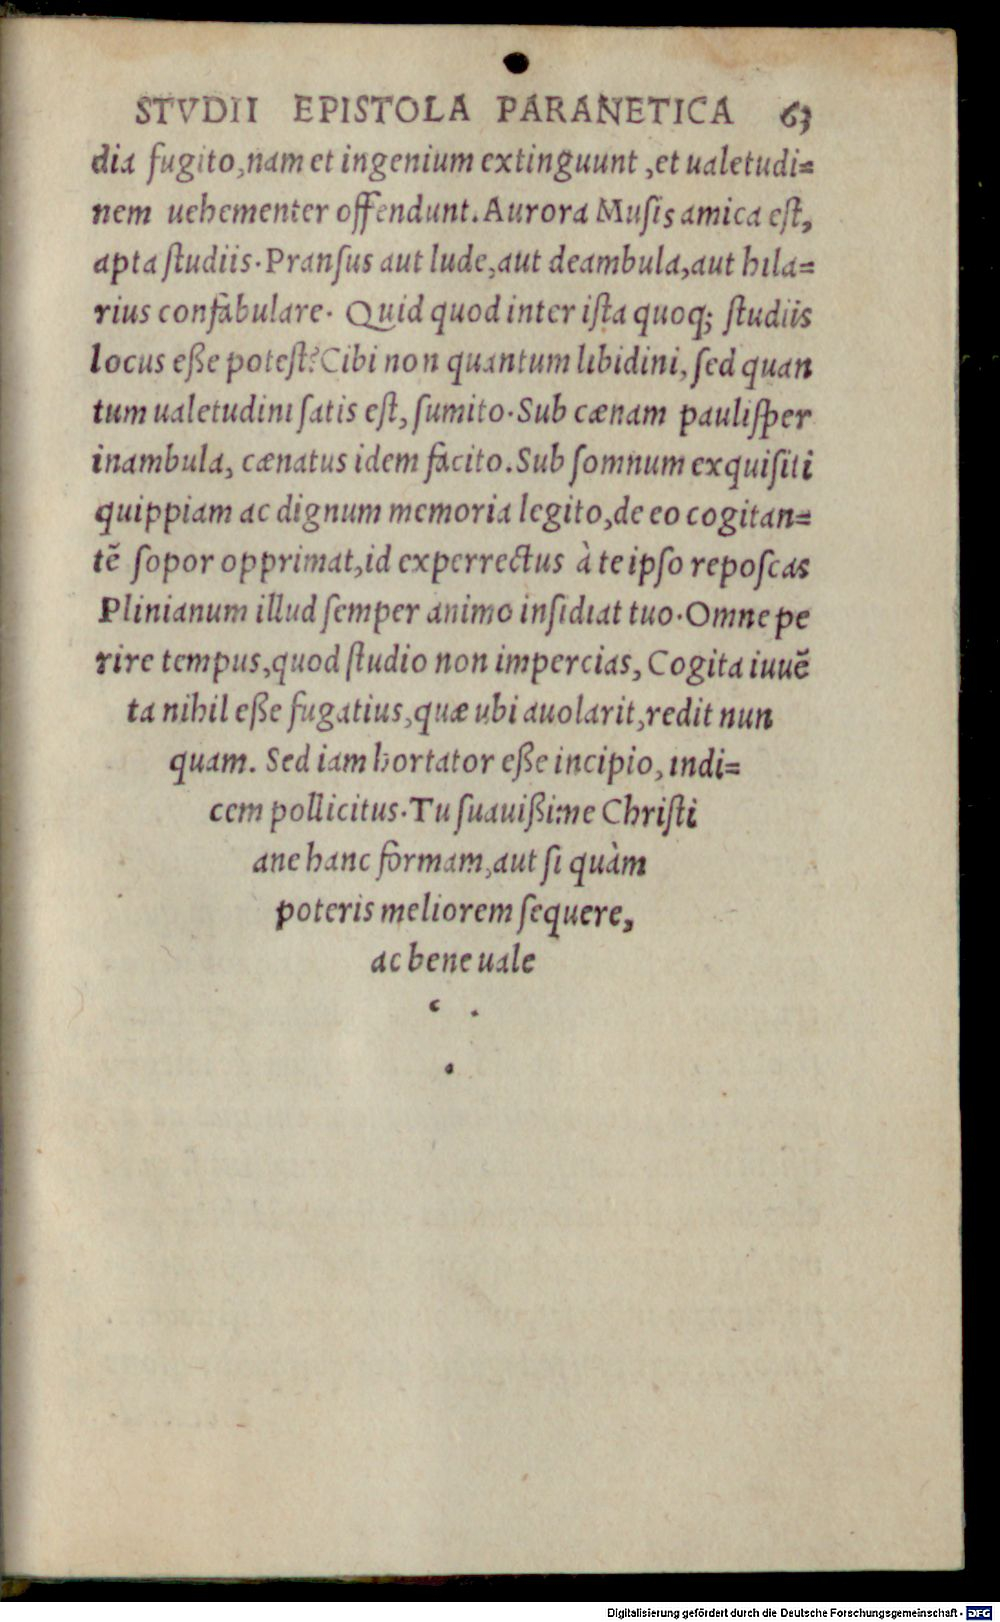 STVDII EPISTOLA PARANETICA 63
dia fugito, nam et ingenium extinguunt, et ualetudi=
nem uehementer offendunt. Aurora Musis amica est,
apta studiis. Pransus aut lude, aut deambula, aut hila=
rius confabulare. Quid quod inter ista quoq; studiis
locus eße potest? Cibi non quantum libidini, sed quan
tum ualetudini satis est, sumito. Sub cænam paulisper
inambula, cænatus idem facito. Sub somnum exquisiti
quippiam ac dignum memoria legito, de eo cogitan=
tē sopor opprimat, id experrectus à te ipso reposcas
Plinianum illud semper animo insidiat tuo. Omne pe
rire tempus, quod studio non impercias, Cogita iuuē
ta nihil eße fugatius, quæ ubi auolarit, redit nun
quam. Sed iam hortator eße incipio, indi=
cem pollicitus. Tu suauißime Christi
ane hanc formam, aut si quàm
poteris meliorem sequere,
ac bene uale
Digitalisierung gefördert durch die Deutsche Forschungsgemeinschaft - DFG